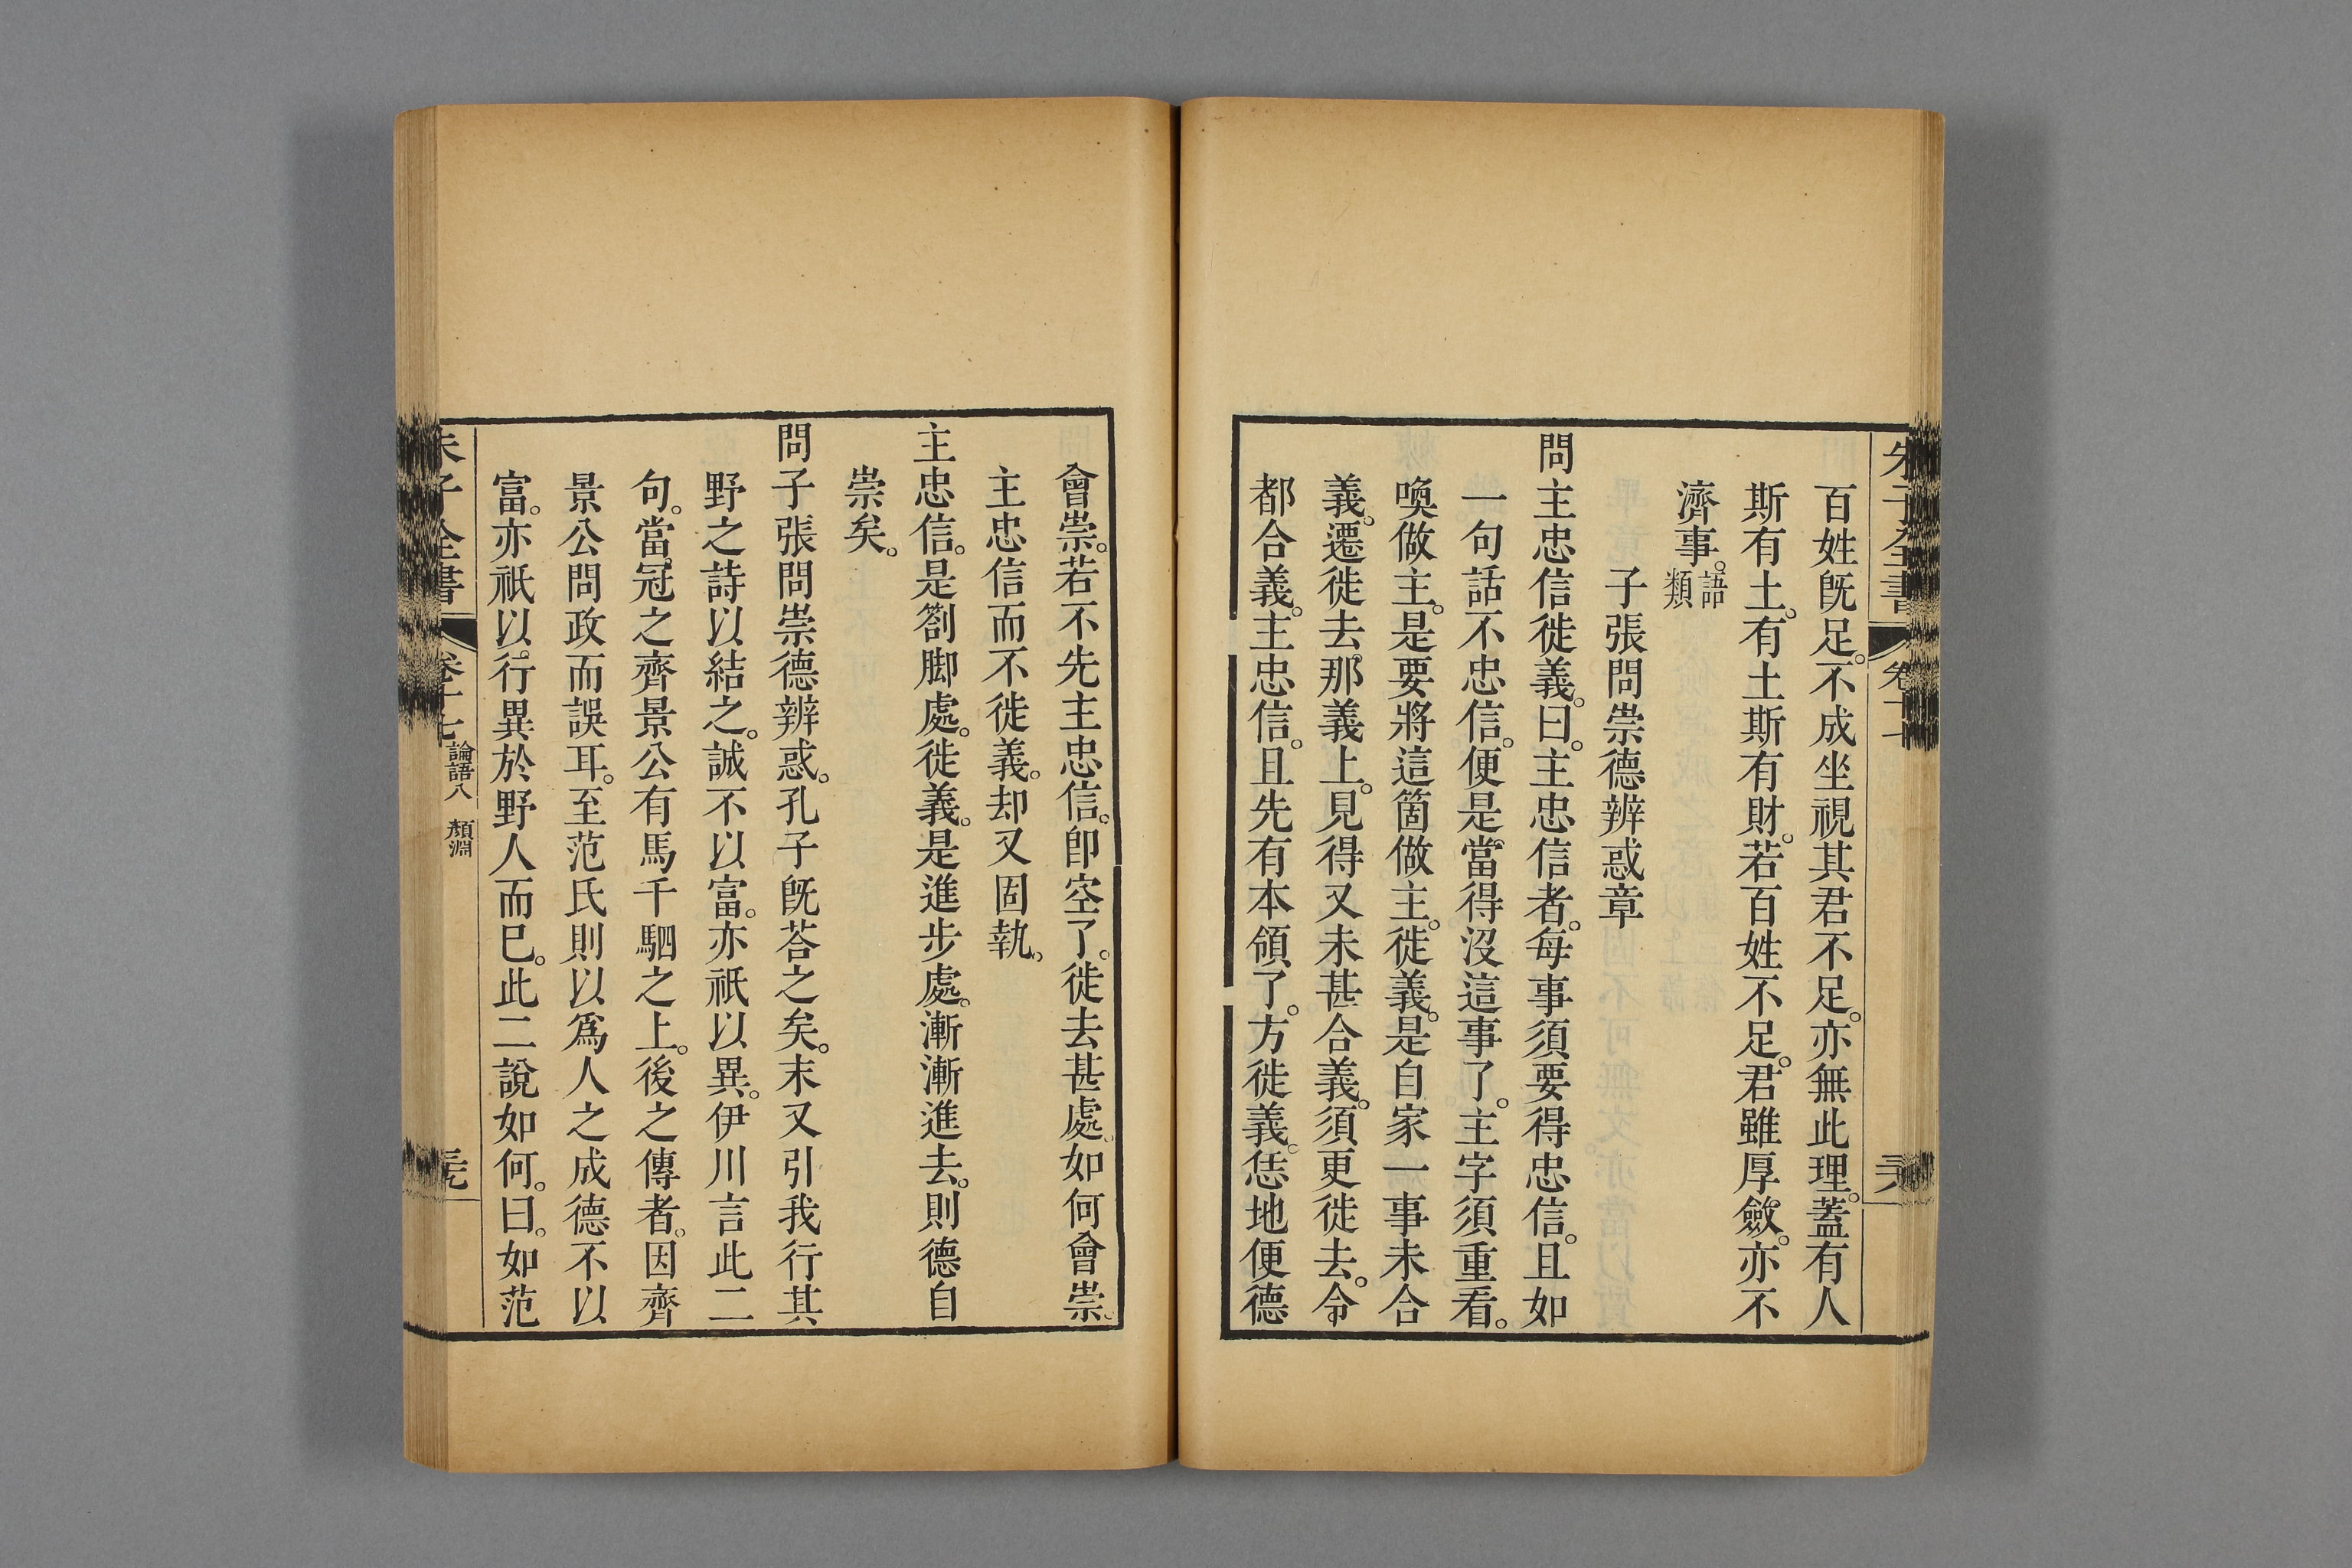 朱子全書 卷十七
百姓旣足。不成坐視其君不足。亦無此理。蓋有人
斯有土。有土斯有財。若百姓不足。君雖厚斂。亦不
濟事。語類
子張問崇德辨惑章
問主忠信徙義。曰。主忠信者。每事須要得忠信。且如
一句話不忠信。便是當得沒這事了。主字須重看。
喚做主。是要將這箇做主。徙義。是自家一事未合
義。遷徙去。那義上。見得又未甚合義。須更徙去。令
都合義。主忠信。且先有本領了。方徙義。恁地便德
會崇。若不先主忠信。卽空了。徙去甚處。如何會崇。
主忠信而不徙義。却又固執。
主忠信。是劄脚處。徙義。是進步處。漸漸進去。則德自
崇矣。
問子張問崇德辨惑。孔子旣荅之矣。末又引我行其
野之詩以結之。誠不以富。亦祇以異。伊川言此二
句。當冠之齊景公有馬千駟之上。後之傳者。因齊
景公問政而誤耳。至范氏則以爲人之成德不以
富。亦祇以行異於野人而已。此二說如何。曰。如范
朱子全書 卷十七 論語八 顏淵